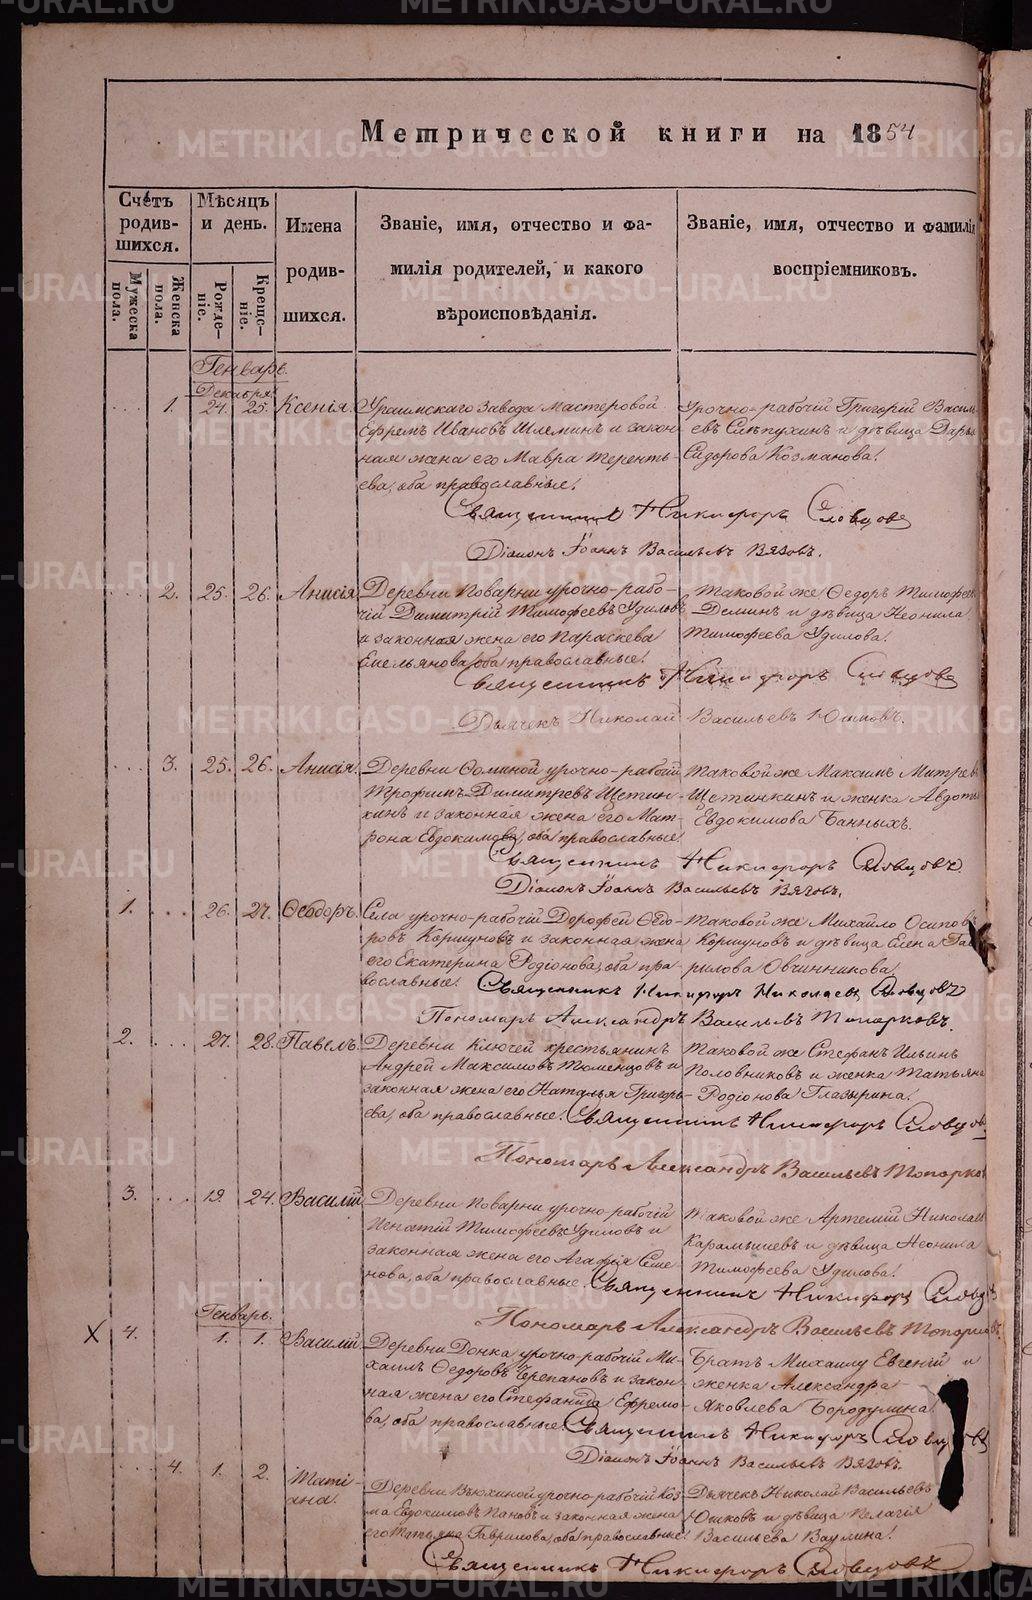 Метрической книги на 1854
Счетъ родив-шихся.
Мѣсяцъ и день.
Имена родив-шихся.
Званіе, имя, отчество и фа-
милія родителей, и какого
вѣроисповѣданія.
Званіе, имя, отчество и фамилія
воспріемниковъ.
Мужеска пола.
Женска пола.
Рожде-ніе.
Креще-ніе.
Генварь.
Декабря
1. 24. 25. Ксенія. Ураимскаго Завода Мастеровой Урочно-рабочій Григорій Василь-
Ефремъ Ивановъ Шлеминъ и закон- евъ Слѣпухинъ и дѣвица Дарья
ная жена его Мавра Теренть- Сидорова Козманова.
ева, оба православные.
Священникъ Никифоръ Словцовъ
Діаконъ Іоаннъ Васильевъ Вязовъ.
2. 25. 26. Анисія. Деревни Поварни урочно-рабо- Таковой же Ѳедоръ Тимофеевъ
чій Димитрій Тимофеевъ Удиловъ Деминъ и дѣвица Неонила
и законная жена его Параскева Тимофеева Удилова.
Емельянова, оба православные.
Священникъ Никифоръ Словцовъ
Дьячекъ Николай Васильевъ Юшковъ.
3. 25. 26. Анисія. Деревни урочно-рабочій Таковой же Максимъ Митрев
Трофимъ Димитревъ Щетин- Щетинкинъ и женка Авдотья
кинъ и законная жена его Мат- Евдокимова Банныхъ.
рона Евдокимова, оба православные.
Священникъ Никифоръ Словцовъ
Діаконъ Іоаннъ Васильевъ Вязовъ.
1. 26. 27. Ѳеодоръ. Села урочно-рабочій Дорофей Ѳедо- Таковой же Михайло Осиповъ
ровъ Коршуновъ и законная жена Коршуновъ и дѣвица Елена Гав
его Екатерина Родіонова, оба пра- рилова Овчинникова.
вославные. Священникъ Никифоръ Николаевъ Словцовъ
Пономарь Александръ Васильевъ Топорковъ.
2. 27. 28. Павелъ. Деревни Ключей крестьянинъ Таковой же Стефанъ Ильинъ
Андрей Максимовъ Тюменцовъ и Половниковъ и женка Татьяна
законная жена его Наталья Григорь- Родіонова Глазырина.
ева, оба православные. Священникъ Никифоръ Словцовъ
Пономарь Александръ Васильевъ Топорков
3. 19. 24. Василій. Деревни Поварни урочно-рабочій Таковой же Артемій Николаев
Игнатій Тимофеевъ Удиловъ и Карамышевъ и дѣвица Неонила
законная жена его Агафія Семе- Тимофеева Удилова.
нова, оба православные. Священникъ Никифоръ Словцовъ
Пономарь Александръ Васильевъ Топорковъ.
Генварь.
X 4. 1. 1. Василій. Деревни Донка урочно-рабочій Ми- Братъ Михаилу Евгеній и
хаилъ Ѳедоровъ Черепановъ и закон- женка Александра
ная жена его Стефанида Ефремо- Яковлева Бородулина.
ва, оба православные. Священникъ Никифоръ Словцовъ
Діаконъ Іоаннъ Васильевъ Вязовъ.
4. 1. 2. Таті-ана. Деревни Вьюхиной урочно-рабочій Коз- Дьячекъ Николай Васильевъ
ма Евдокимовъ Пановъ и законная жена Юшковъ и дѣвица Пелагія
его Татьяна Гаврилова, оба православные. Васильева Ваулина.
Священникъ Никифоръ Словцовъ
METRIKI.GASO-URAL.RU